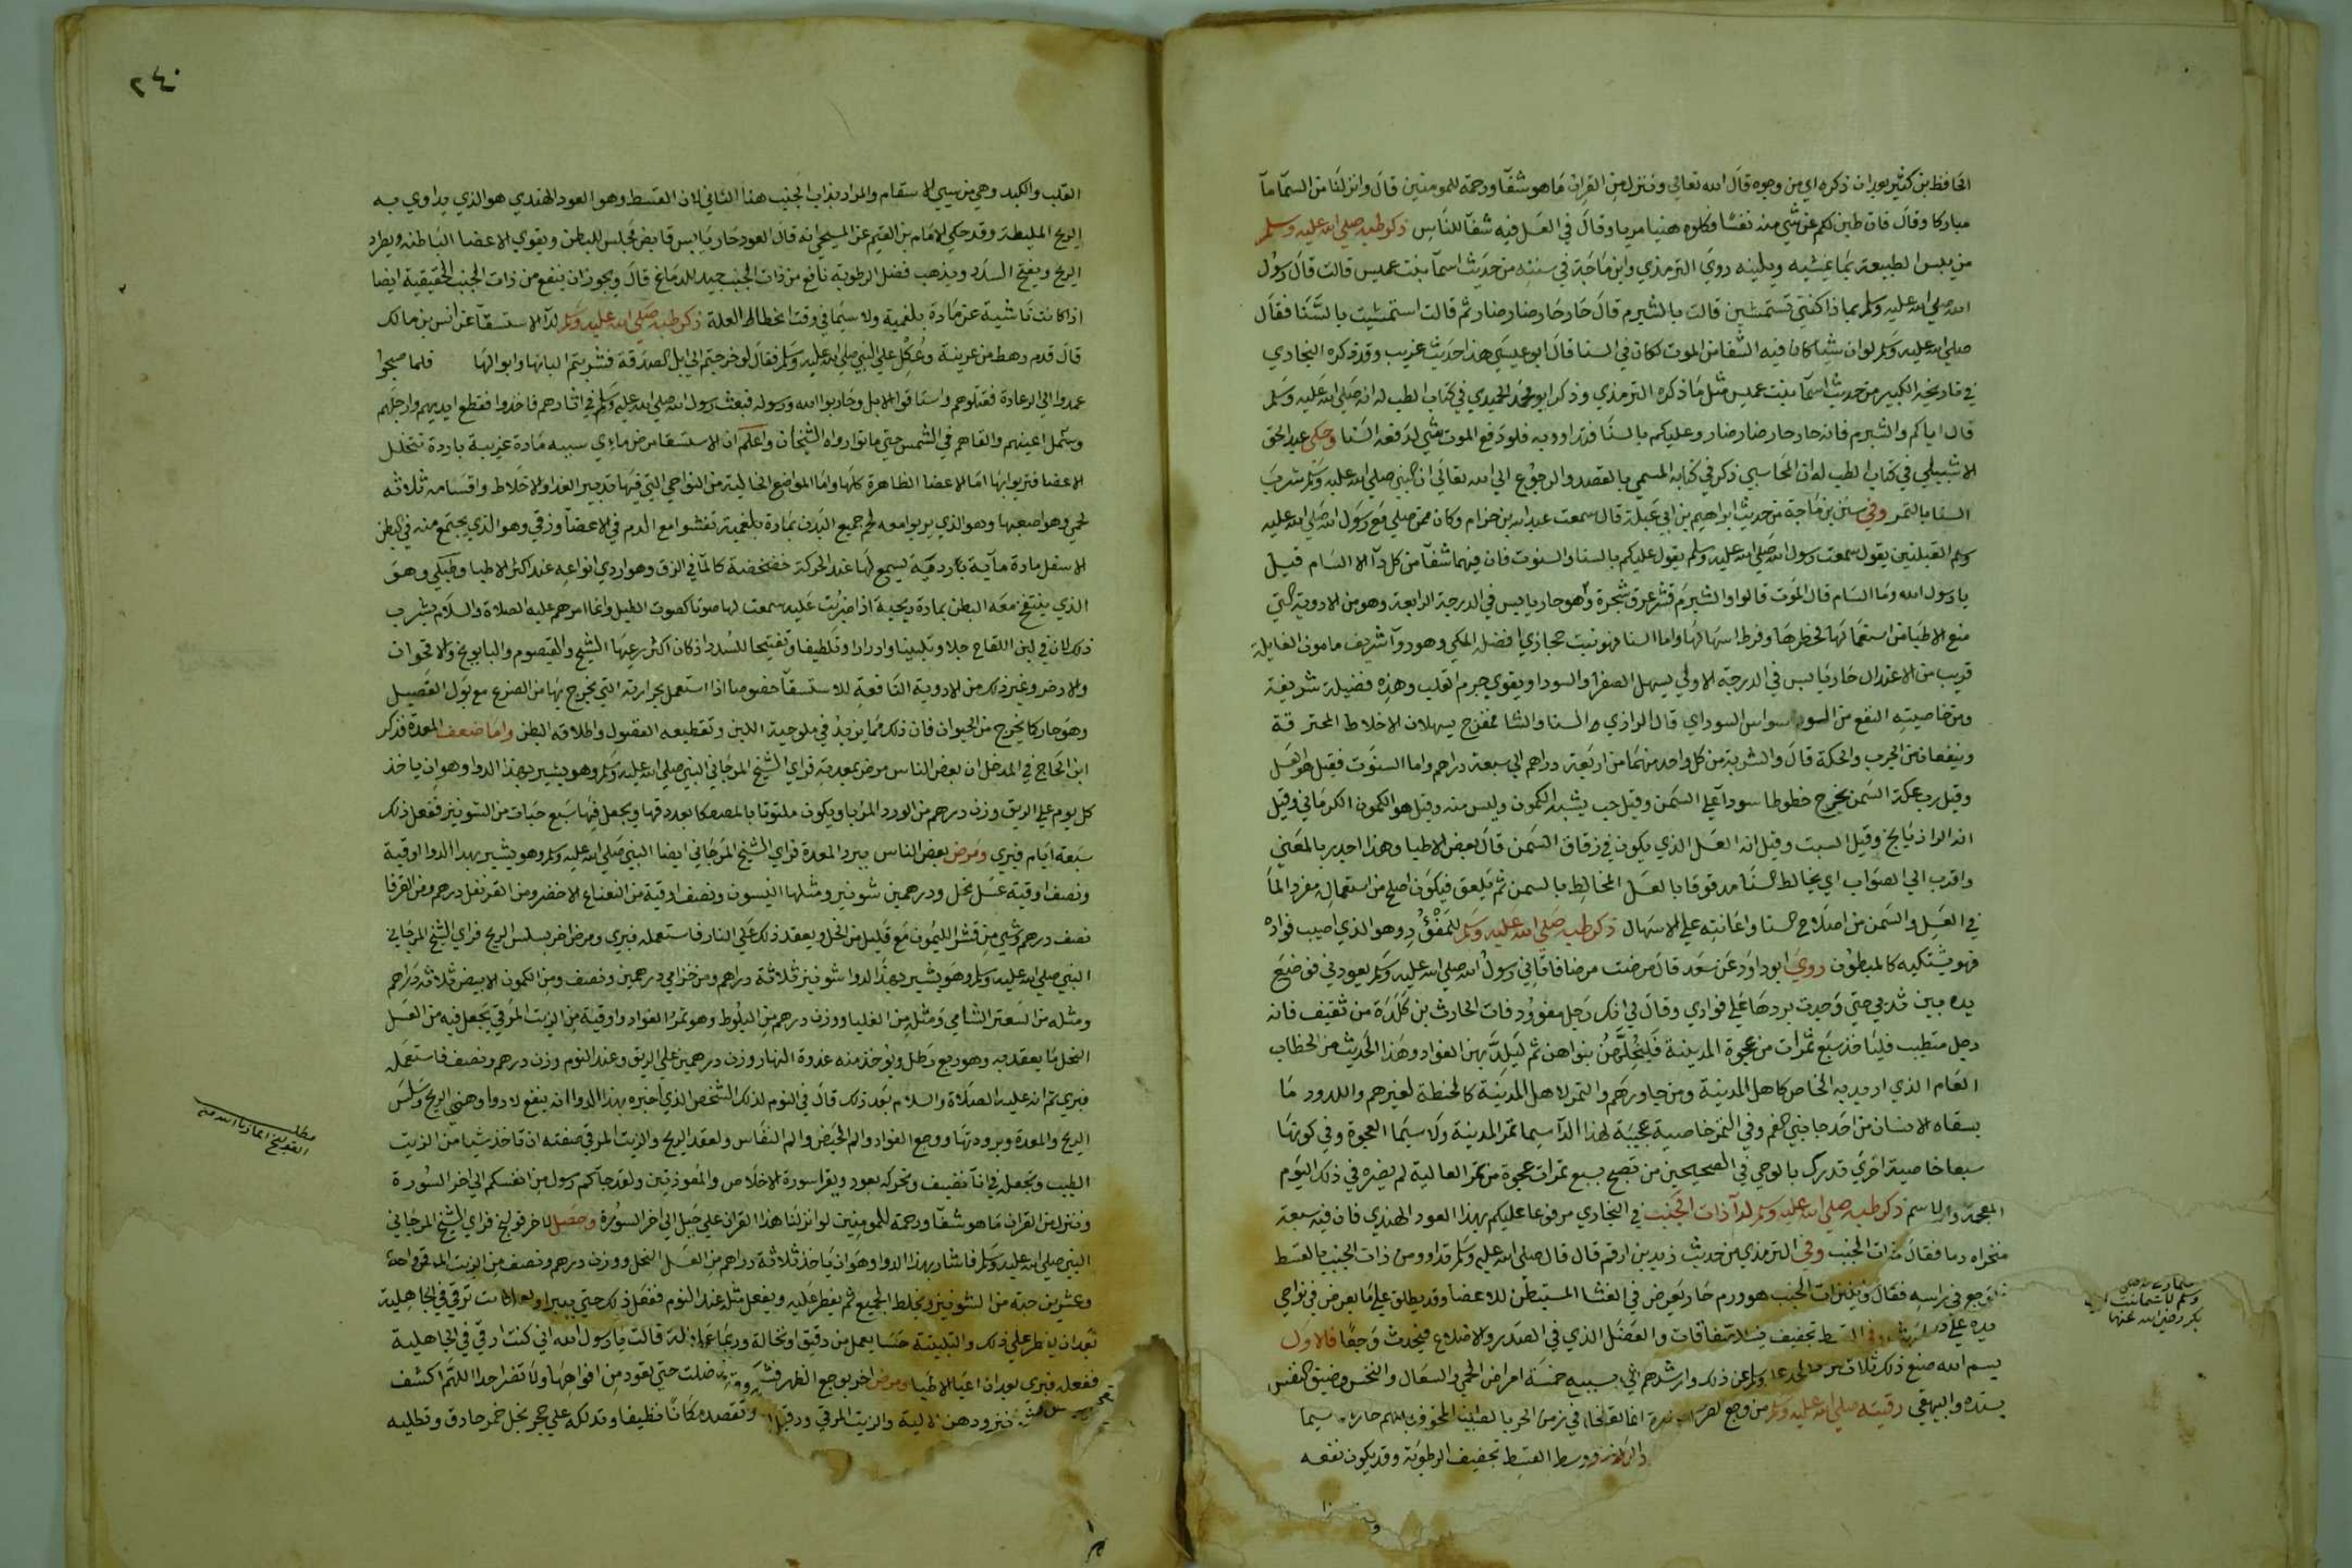 الحافظ بن كثير بعد ان ذكره اي من وجوه قال الله تعالي وننزل من القران ما هو شفآ ورحمة للمومنين قال وانزلنا من السمآ مآ
مباركا وقال فان طبن لكم عن شي منه نفسا فكلوه هنيا مريا وقال في العسل فيه شفآ للناس ذكر طبه صلي الله عليه وسلم
من يبس الطبيعة بما يمشيه ويلينه روي الترمذي وابن ماجة في سننه من حديث اسمآ بنت عميس قالت قال رسول
الله صلي الله عليه وسلم بماذا كنتي تستمشين قالت بالشبرم قال حار حار ضار ضار ثم قالت استمشيت بالسنا فقال
صلي الله عليه وسلم لو ان شيا كان فيه الشفا من الموت لكان في السنا قال ابو عيسي هذا حديث غريب وقد ذكره البخاري
في تاريخه الكبير من حديث اسمآ بنت عميس مثل ما ذكره الترمذي وذكر ابو محمد الحميدي في كتاب الطب له انه صلي الله عليه وسلم
قال اياكم والشبرم فانه حار حار ضار ضار وعليكم بالسنا فتداوو به فلو دفع الموت شي لدفعه السنا وحكي عبد الحق
الاشبيلي في كتاب الطب له ان المحاسبي ذكر في كتابه المسمي بالقصد والرجوع الي الله تعالي ان النبي صلي الله عليه وسلم شرب
السنا بالتمر وفي سنن بن ماجة من حديث ابراهيم بن ابي عبلة قال سمعت عبد الله بن حزام وكان ممن صلي مع رسول الله صلي الله عليه
وسلم القبلتين يقول سمعت رسول الله صلي الله عليه وسلم يقول عليكم بالسنا والسنوت فان فيهما شفآ من كل دآ الا السام قيل
يا رسول الله وما السام قال الموت قالوا والشبرم قشر عرق شجرة وهو حار يابس في الدرجة الرابعة وهو من الادوية التي
منع الاطبا من استعمالها لخطرها وفرط اسهالها واما السنا فهو نبت حجازي افضله المكي وهو دوآ شريف مامون الغايلة
قريب من الاعتدال حار يابس في الدرجة الاولي يسهل الصفرا والسودا ويقوي جرم القلب وهذه فضيلة شريفة
ومن خاصيته النفع من الوسواس السوداوي قال الرازي السنا والشاهترج يسهلان الاخلاط المحترقة
وينفعان من الجرب والحكة قال والشربة من كل واحد منهما من اربعة دراهم الي سبعة دراهم واما السنوت فقيل هو العسل
وقيل رب عكة السمن يخرج خطوطا سودآ علي السمن وقيل حب يشبه الكمون وليس منه وقيل هو الكمون الكرماني وقيل
انه الرازيانج وقيل السبت وقيل انه العسل الذي يكون في زقاق السمن قال بعض الاطبا وهذا اجدر بالمعني
واقرب الي الصواب اي يخالط السنا مدقوقا بالعسل المخالط بالسمن ثم يلعق فيكون اصلح من استعماله مفردا لما
في العسل والسمن من اصلاح السنا واعانته علي الاسهال ذكر طبه صلي الله عليه وسلم للمفؤد وهو الذي اصيب فواده
فهو يشتكيه كالمبطون روي ابو داود عن سعد قال مرضت مرضا فاتاني رسول الله صلي الله عليه وسلم يعودني فوضع
يده بين ثديي حتي وجدت بردها علي فوادي وقال لي انك رجل مفوود فات الحارث بن كلدة من ثقيف فانه
رجل متطبب فلياخذ سبع تمرات من عجوة المدينة فليجأهن بنواهن ثم ليلدك بهن الفواد وهذا الحديث من الخطاب
العام الذي اريد به الخاص كاهل المدينة ومن جاورهم والتمر لاهل المدينة كالحنطة لغيرهم واللدود ما
يسقاه الانسان من احد جانبي الفم وفي التمر خاصية عجيبة لهذا الدآ سيما تمر المدينة ولا سيما العجوة وفي كونها
سبعا خاصية اخري تدرك بالوحي في الصحيحين من تصبح بسبع تمرات عجوة من تمر العالية لم يضره في ذلك اليوم
ذكر طبه صلي الله عليه وسلم لدآ ذات الجنب في البخاري مرفوعا عليكم بهذا العود الهندي فان فيه سبعة
وفي الترمذي من حديث زيد بن ارقم قال قال صلي الله عليه وسلم تداوو من ذات الجنب بالقسط
ذات الجنب هو ورم حار يعرض في الغشا المستبطن للاعضا وقد يطلق علي ما يعرض في نواحي
والعضل الذي في الصدر والاضلاع فيحدث وجعا فالاول
بسببه خمسة امراض الحمي والسعال والنخس وضيق النفس
رقيته صلي الله عليه وسلم من وجع
ووسط القسط تجفيف الرطوبة وقد يكون نفعه
بكر رضي الله عنهما
٢٤٠
القلب والكبد وهي من سيي الاسقام والمراد بذات الجنب هنا الثاني لان القسط وهو العود الهندي هو الذي يداوي به
الريح الغليظة وقد حكي الامام بن القيم عن المسيحي انه قال العود حار يابس قابض يحبس البطن ويقوي الاعضا الباطنة ويطرد
الريح ويفتح السدد ويذهب فضل الرطوبة نافع من ذات الجنب جيد للدماغ قال ويجوز ان ينفع من ذات الجنب الحقيقية ايضا
اذا كانت ناشية عن مادة بلغمية ولا سيما في وقت انحطاط العلة ذكر طبه صلي الله عليه وسلم لدآ الاستسقآ عن انس بن مالك
قال قدم رهط من عرينة وعكل علي النبي صلي الله عليه وسلم فقال لو خرجتم الي ابل الصدقة فشربتم البانها وابوالها فلما صحوا
عمدوا الي الرعاة فقتلوهم واستاقوا الابل وحاربوا الله ورسوله فبعث رسول الله صلي الله عليه وسلم في اثارهم فاخذوا فقطع ايديهم وارجلهم
وسمل اعينهم والقاهم في الشمس حتي ماتوا رواه الشيخان واعلم ان الاستسقا مرض ماءي سببه مادة غريبة باردة تتخلل
الاعضا فتربوا بها اما الاعضا الظاهرة كلها واما المواضع الخالية من النواحي التي فيها تدبير الغذا والاخلاط واقسامه ثلاثة
لحمي وهو اصعبها وهو الذي يربوا معه لحم جميع البدن بمادة بلغمية تفشوا مع الدم في الاعضآ وزقي وهو الذي يجتمع منه في البطن
الاسفل مادة مآية ردية يسمع لها عند الحركة خضخضة كالمآ في الزق وهو اردي انواعه عند اكثر الاطبا وطبلي وهو
الذي ينتفخ معه البطن بمادة ريحية اذا ضربت عليه سمعت لها صوتا كصوت الطبل وانما امرهم عليه الصلاة والسلام بشرب
ذلك لان في لبن اللقاح جلا وتليينا وادرارا وتلطيفا وتفتيحا للسدد اذ كان اكثر رعيها الشيح والقيصوم والبابونج والاقحوان
والاذخر وغير ذلك من الادوية النافعة للاستسقآ خصوصا اذا استعمل بحرارته التي يخرج بها من الضرع مع بول الفصيل
وهو حار كما يخرج من الحيوان فان ذلك مما يزيد في ملوحية اللبن وتقطيعه الفضول واطلاقه البطن واما ضعف المعدة فذكر
ابن الحاج في المدخل ان بعض الناس مرض بمعدته فراي الشيخ المرجاني النبي صلي الله عليه وسلم وهو يشير بهذا الدوا وهو ان ياخذ
كل يوم علي الريق وزن درهم من الورد المربا ويكون ملتوتا بالمصطكا بعد دقها ويجعل فيها سبع حبات من الشونيز ففعل ذلك
سبعة ايام فبري ومرض بعض الناس ببرد المعدة فراي الشيخ المرجاني ايضا النبي صلي الله عليه وسلم وهو يشير بهذا الدوا اوقية
ونصف اوقية عسل نحل ودرهمين شونيز ومثلها انيسون ونصف اوقية من النعناع الاخضر ومن القرنفل درهم ومن القرفا
نصف درهم وشي من قشر الليمون مع قليل من الخل ويعقد ذلك علي النار فاستعمله فبري ومرض اخر بسلس الريح فراي الشيخ المرجاني
النبي صلي الله عليه وسلم وهو يشير بهذا الدوا شونيز ثلاثة دراهم ومن خزامي درهمين ونصف ومن الكمون الابيض ثلاثة دراهم
ومثله من السعتر الشامي ومثله من الفليا ووزن درهم من البلوط وهو تمر الفواد واوقية من الزيت المرقي يجعل فيه من العسل
النحل ما يعقد به وهو ربع رطل ويوخذ منه غدوة النهار وزن درهمين علي الريق وعند النوم وزن درهم ونصف فاستعمله
فبري ثم انه عليه الصلاة والسلام بعد ذلك قال في النوم لذلك الشخص الذي اخبره بهذا الدوا انه ينفع لادوا وهي الريح وسلس
الريح والمعدة وبرودتها ووجع الفواد والم الحيض والم النفاس ولعقد الريح والزيت المرقي صفته ان تاخذ شيا من الزيت
الطيب وتجعله في انآ نضيف وتحركه بعود ويقرا سورة الاخلاص والمعوذتين ولقد جآكم رسول من انفسكم الي اخر السورة
وننزل من القران ما هو شفآ ورحمة للمومنين لو انزلنا هذا القران علي جبل الي اخر السورة وحصل لاخر قولنج فراي الشيخ المرجاني
النبي صلي الله عليه وسلم فاشار بهذا الدوا وهو ان ياخذ ثلاثة دراهم من العسل النحل ووزن درهم ونصف من الزيت المرقي واحدة
وعشرين حبة من الشونيز ويخلط الجميع ثم يفطر عليه ويفعل مثله عند النوم ففعل ذلك حتي يبرا
بعد ان يفطر علي ذلك والتلبينة حسا يعمل من دقيق او نخالة وربما
ففعله فبري بعد ان اعيا الاطبا ومرض اخر بوجع الظهر
دهن الالية والزيت المرقي
مطلب
القولنج اعاذنا الله منه